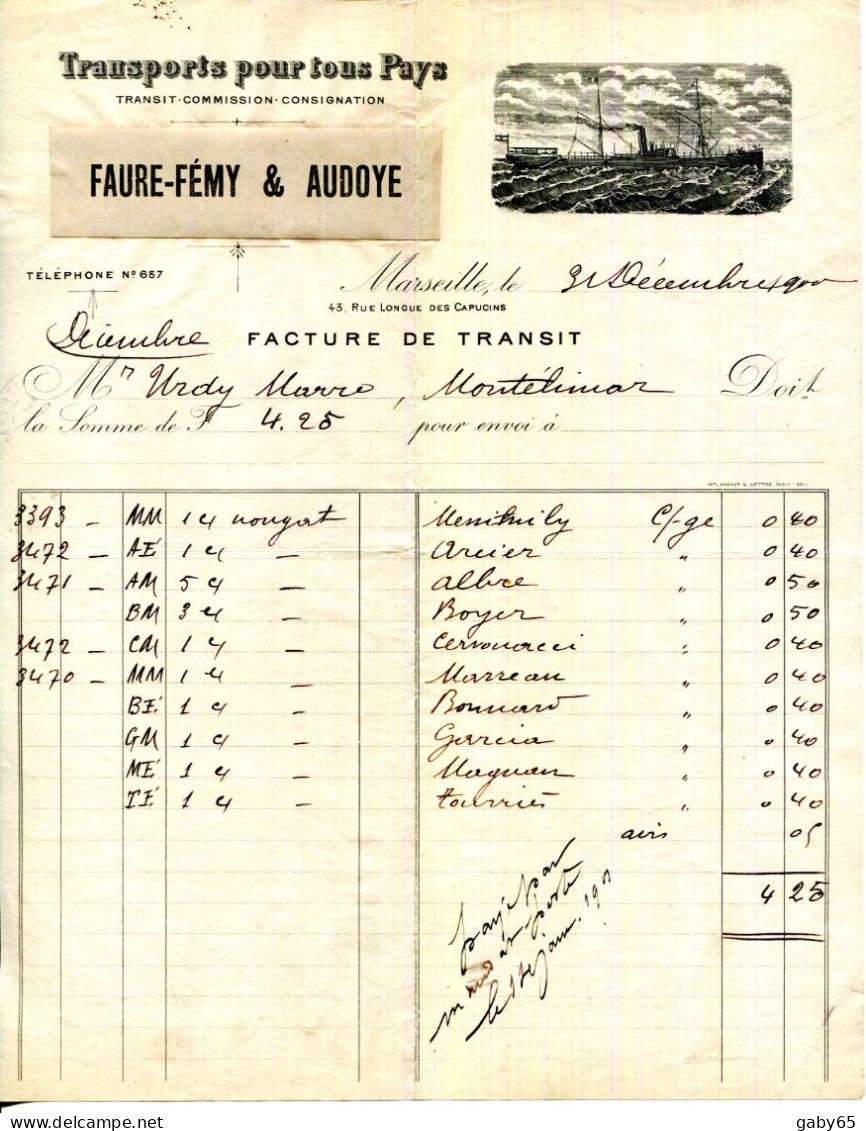 Transports pour tous Pays
TRANSIT·COMMISSION·CONSIGNATION
FAURE-FÉMY & AUDOYE
TÉLÉPHONE Nº 657
Marseille, le 31 Décembre 1900
43, RUE LONGUE DES CAPUCINS
Décembre FACTURE DE TRANSIT
Mr Urdy Marre, Montélimar Doit
la Somme de F 4.25 pour envoi à
3393 - MM 1 nougat C/-ge 0 40
3472 - AÉ 1 - Arcier " 0 40
3471 - AM 5 - Albre " 0 50
BM 3 - Boyer " 0 50
3472 - CM 1 - " 0 40
3470 - MM 1 - Marreau " 0 40
BÉ 1 - Bonnard " 0 40
GM 1 - Garcia " 0 40
MÉ 1 - Magnan " 0 40
TÉ 1 - " 0 40
avis 05
4 25
payé par
poste
le janv. 190
delcampe.net
gaby65